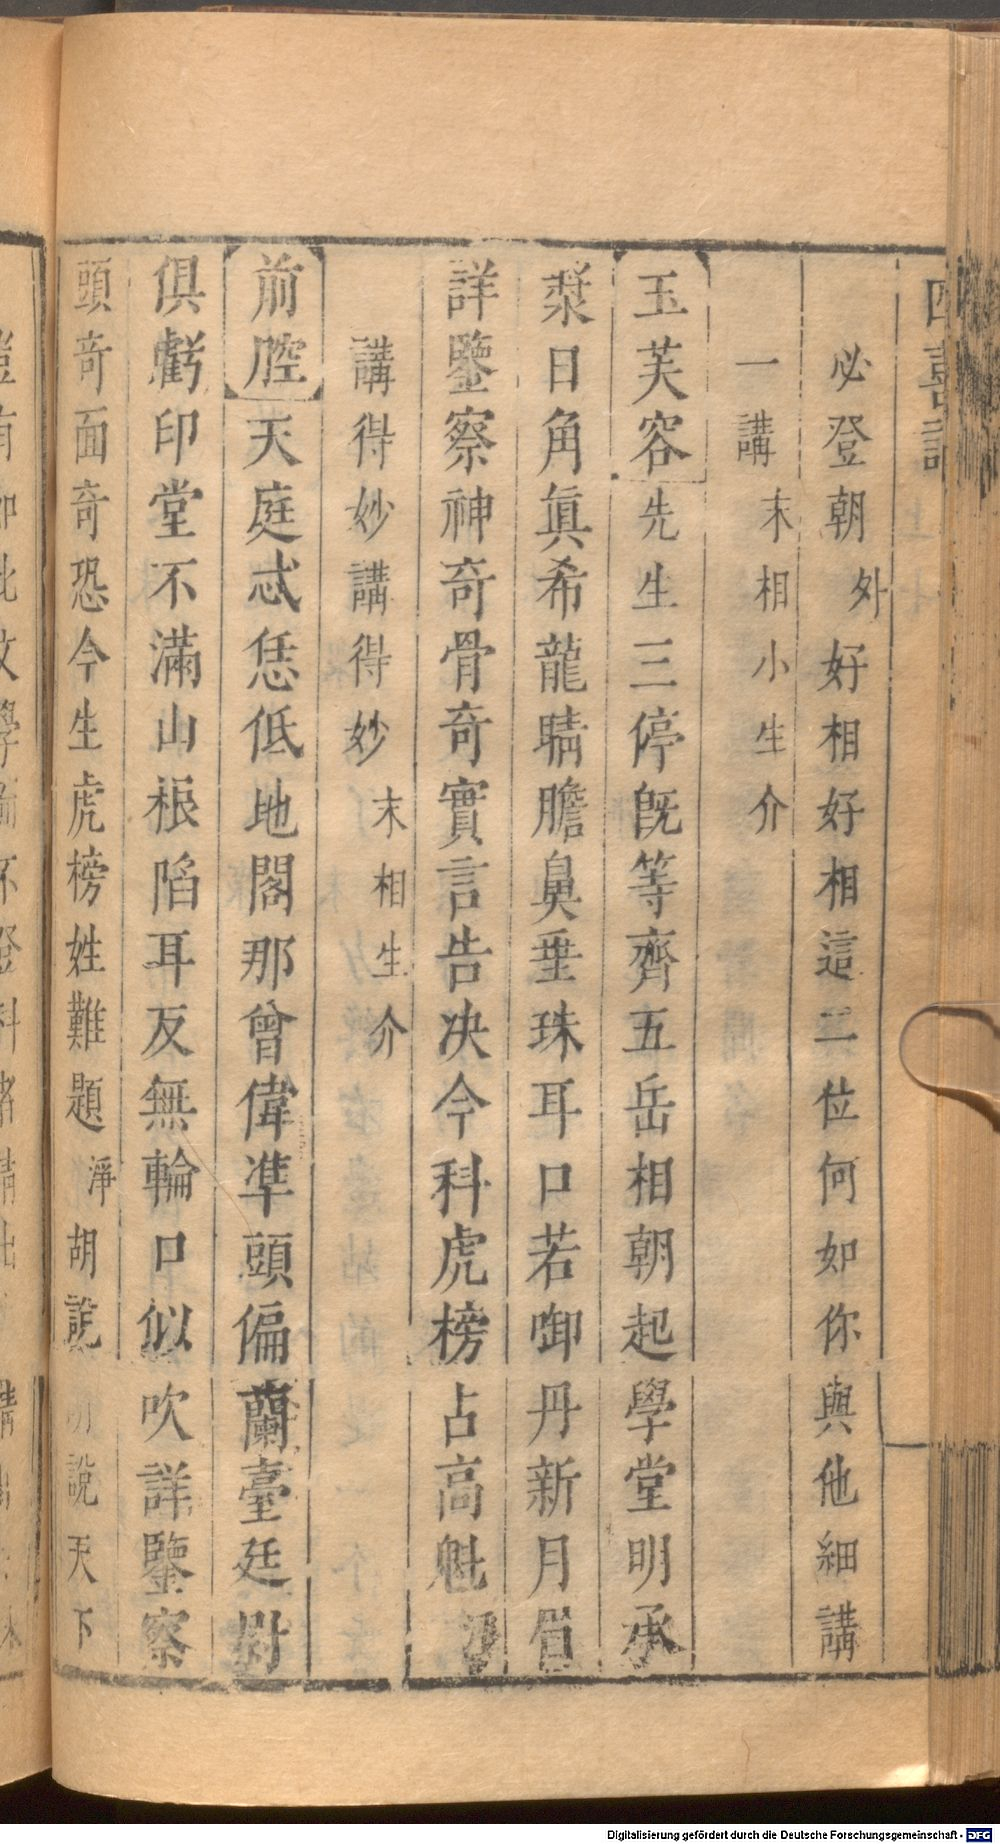 四喜記
必登朝外好相好相這二位何如你與他細講
一講末相小生介
玉芙容先生三停旣等齊五岳相朝起學堂明承
漿日角眞希龍睛膽鼻垂珠耳口若啣丹新月眉
詳鑒察神奇骨奇實言告决今科虎榜占高魁
講得妙講得妙末相生介
前腔天庭忒恁低地閣那曾偉準頭偏蘭臺廷尉
俱虧印堂不滿山根陷耳反無輪口似吹詳鑒察
頭奇面奇恐今生虎榜姓難題淨胡說胡說天下
Digitalisierung gefördert durch die Deutsche Forschungsgemeinschaft - DFG